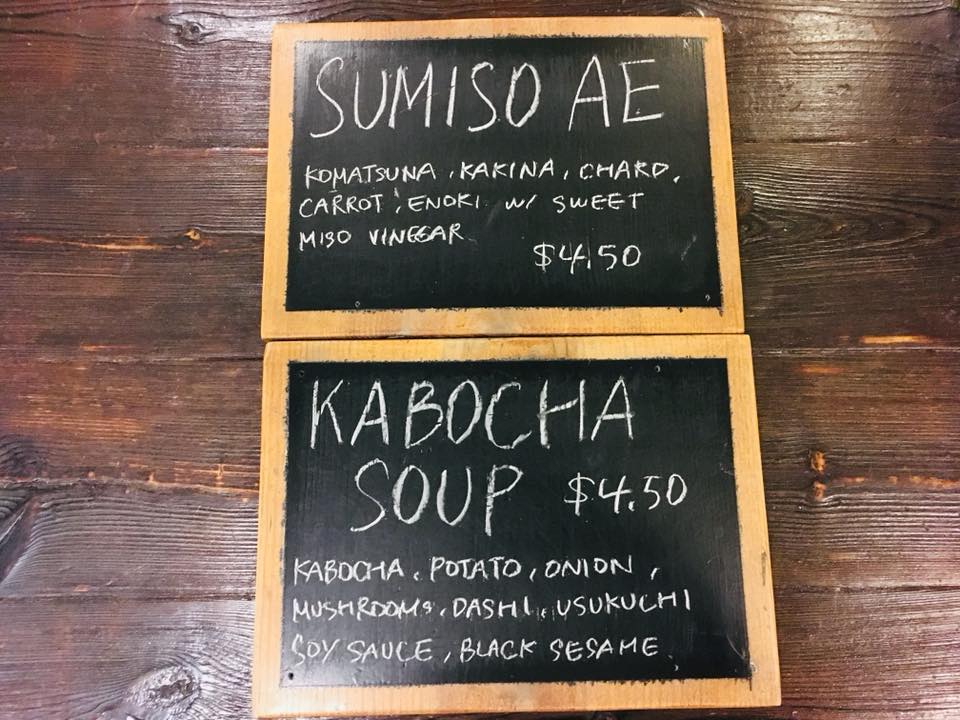 SUMISO AE
KOMATSUNA, KAKINA, CHARD,
CARROT, ENOKI w/ SWEET
MISO VINEGAR
$4.50
KABOCHA
SOUP $4.50
KABOCHA, POTATO, ONION,
MUSHROOMS, DASHI, USUKUCHI
SOY SAUCE, BLACK SESAME